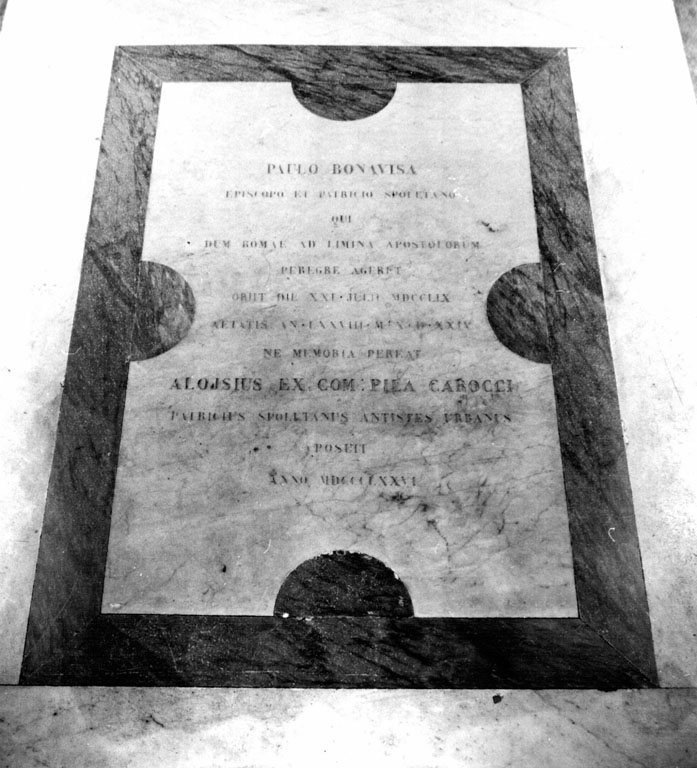 PAULO BONAVISA
EPISCOPO ET PATRICIO SPOLETANO
QUI
DUM ROMAE AD LIMINA APOSTOLORUM
PEREGRE AGERET
OBIIT DIE XXI·JULII MDCCLIX
AETATIS AN·LXXVIII·M·X·D·XXIV
NE MEMORIA PEREAT
ALOJSIUS EX COM: PILA CAROCCI
PATRICIUS SPOLETANUS ANTISTES URBANUS
POSUIT
ANNO MDCCCLXXVI